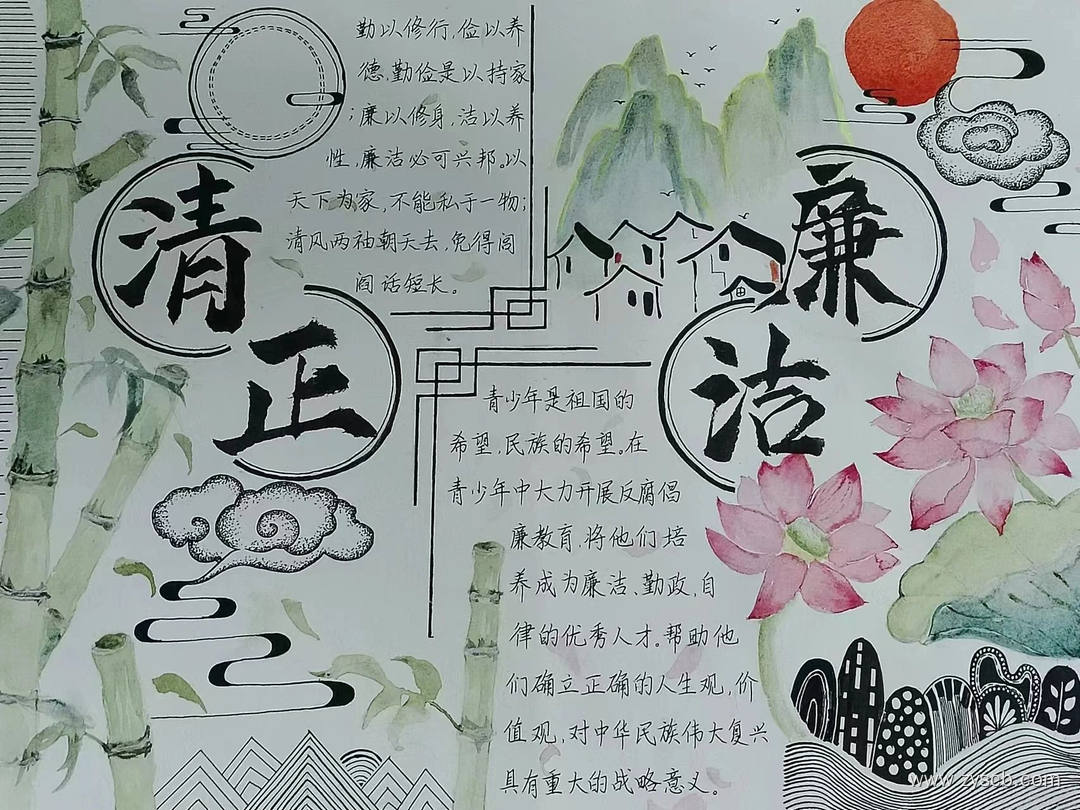 清
正
廉
洁
勤以修行,俭以养
德,勤俭是以持家
;廉以修身,洁以养
性,廉洁必可兴邦。以
天下为家,不能私于一物;
清风两袖朝天去,免得闾
阎话短长。
青少年是祖国的
希望,民族的希望。在
青少年中大力开展反腐倡
廉教育,将他们培
养成为廉洁、勤政、自
律的优秀人才。帮助他
们确立正确的人生观,价
值观,对中华民族伟大复兴
具有重大的战略意义。